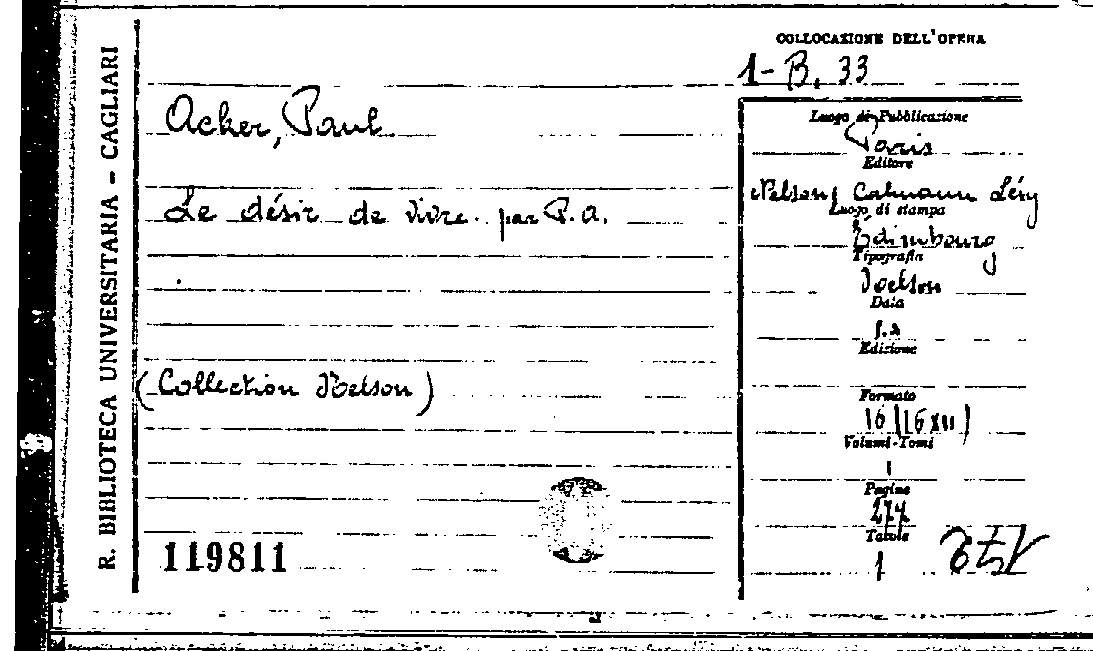 R. BIBLIOTECA UNIVERSITARIA - CAGLIARI
COLLOCAZIONE DELL'OPERA
1-B. 33
Acker, Paul
Le désir de vivre. par P. A.
(Collection Nelson)
119811
Luogo di Pubblicazione
Paris
Editore
Nelson, Calmann Lévy
Luogo di stampa
Edimbourg
Tipografia
Nelson
Data
s.a
Edizione
Formato
16 (16 XII)
Volumi-Tomi
1
Pagine
277
Tavole
1